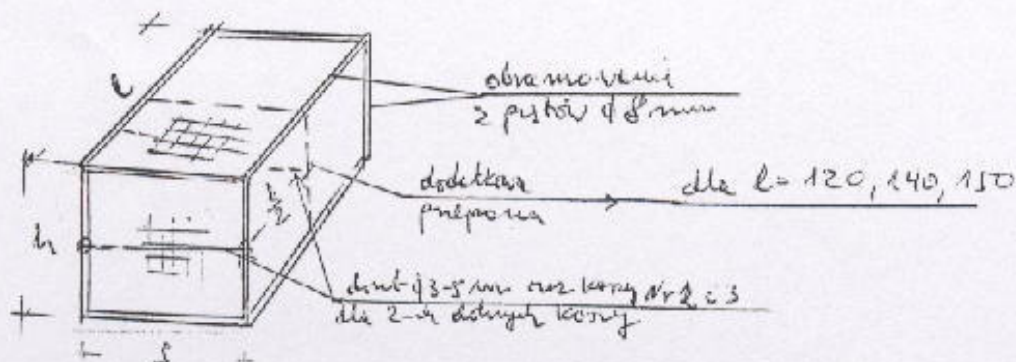 l
obramowanie
z prętów ϕ 8 mm
dodatkowa
przepona
dla l = 120, 140, 150
h
h/2
drut ϕ 3-5 mm oraz koszy Nr 2 i 3
dla 2-ch dolnych koszy
s